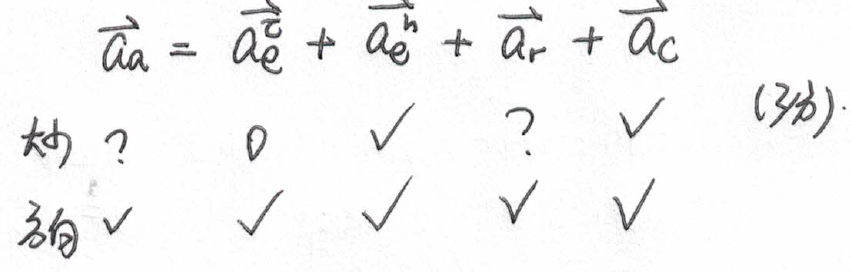 $\vec{a_a} = \vec{a_e^τ} + \vec{a_e^n} + \vec{a_r} + \vec{a_c}$
大小 ? 0 ✓ ? ✓ (3分).
方向 ✓ ✓ ✓ ✓ ✓